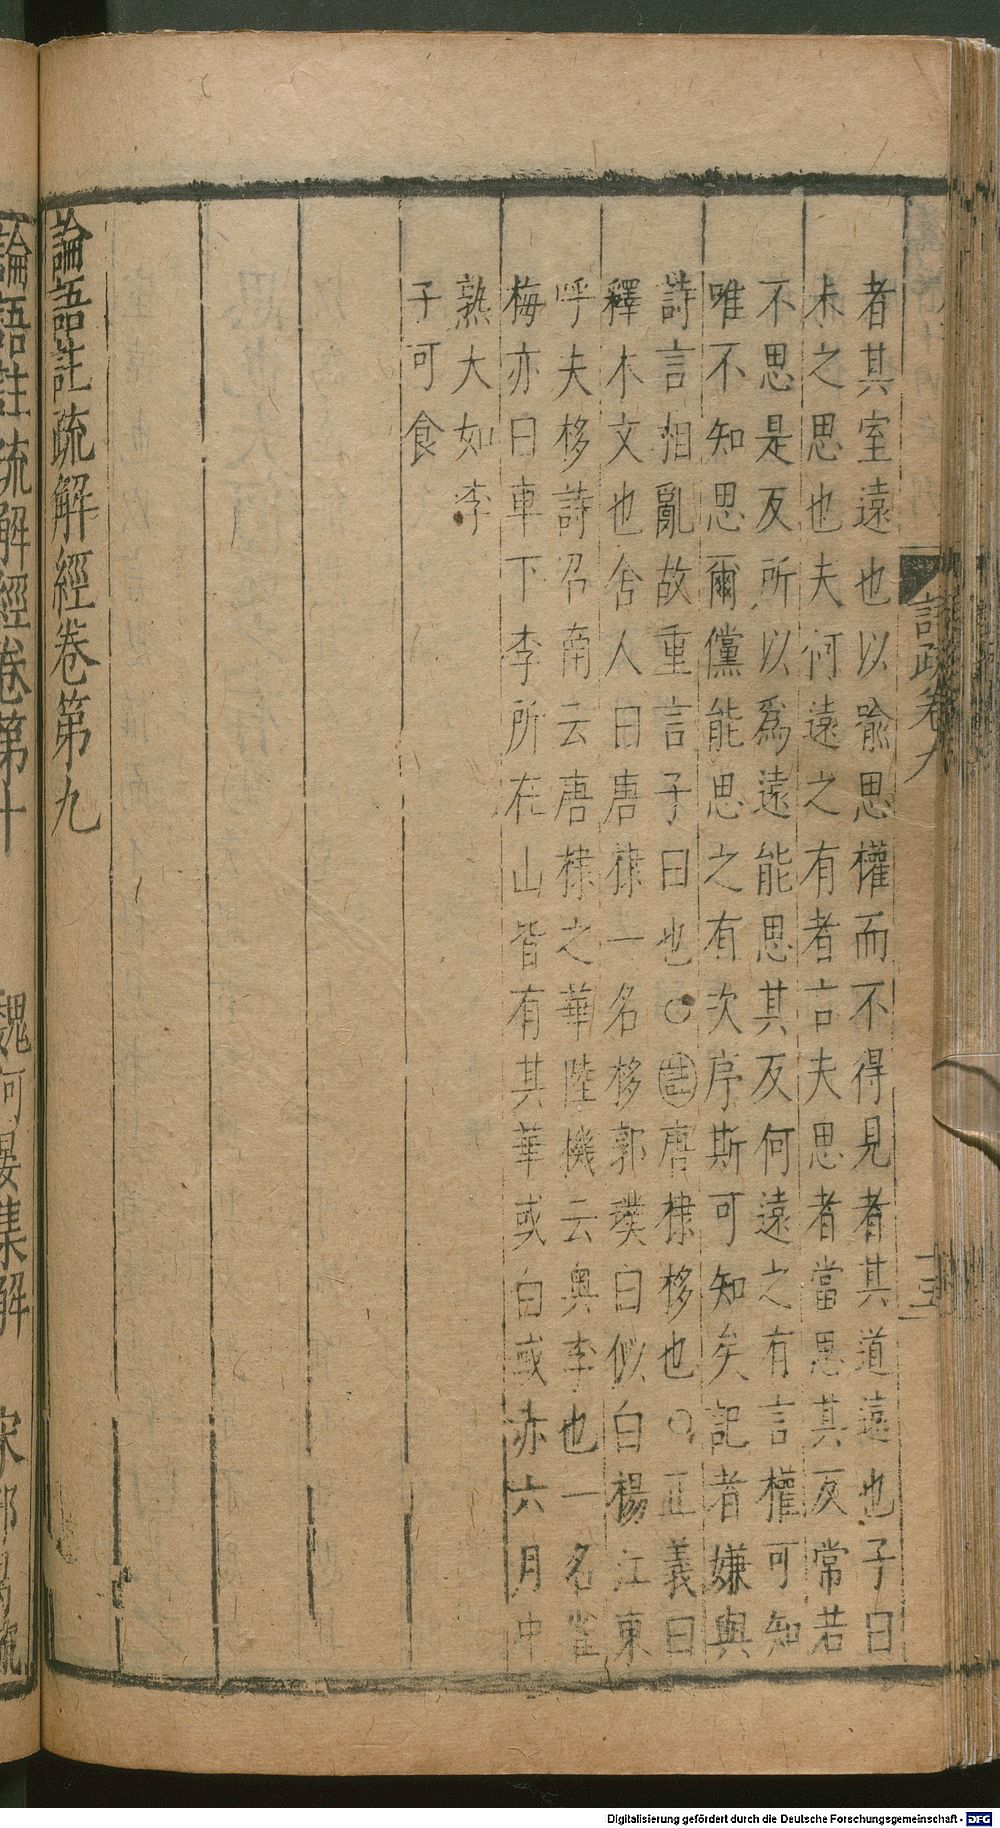 註疏卷九
十五
者其室遠也以喻思權而不得見者其道遠也子曰
未之思也夫何遠之有者言夫思者當思其反常若
不思是反所以為遠能思其反何遠之有言權可知
唯不知思爾儻能思之有次序斯可知矣記者嫌與
詩言相亂故重言子曰也○註唐棣栘也○正義曰
釋木文也舍人曰唐棣一名栘郭璞曰似白楊江東
呼夫栘詩召南云唐棣之華陸機云奥李也一名雀
梅亦曰車下李所在山皆有其華或白或赤六月中
熟大如李
子可食
論語註疏解經卷第九
論語註疏解經卷第十
魏何晏集解
宋邢昺疏
Digitalisierung gefördert durch die Deutsche Forschungsgemeinschaft - DFG